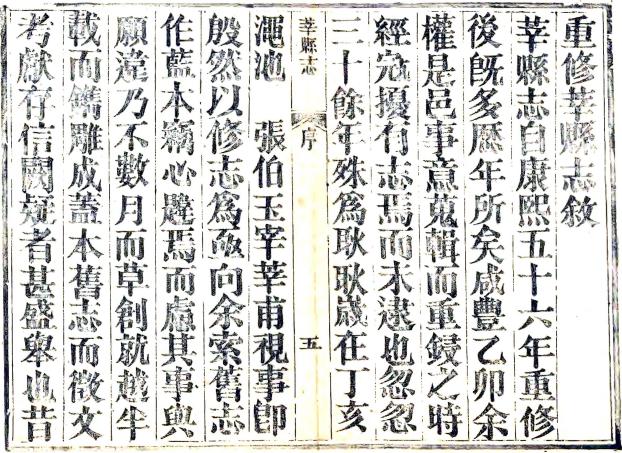 重修莘縣志敘
莘縣志自康熙五十六年重修
後旣多歷年所矣咸豐乙卯余
權是邑事意蒐輯而重鋟之時
經寇擾有志焉而未逮也忽忽
三十餘年殊爲耿耿歲在丁亥
莘縣志 序 五
澠池 張伯玉宰莘甫視事卽
殷然以修志爲亟向余索舊志
作藍本竊心韙焉而慮其事與
願違乃不數月而草創就越半
載而鐫雕成蓋本舊志而徵文
考獻存信闕疑者甚盛舉也昔